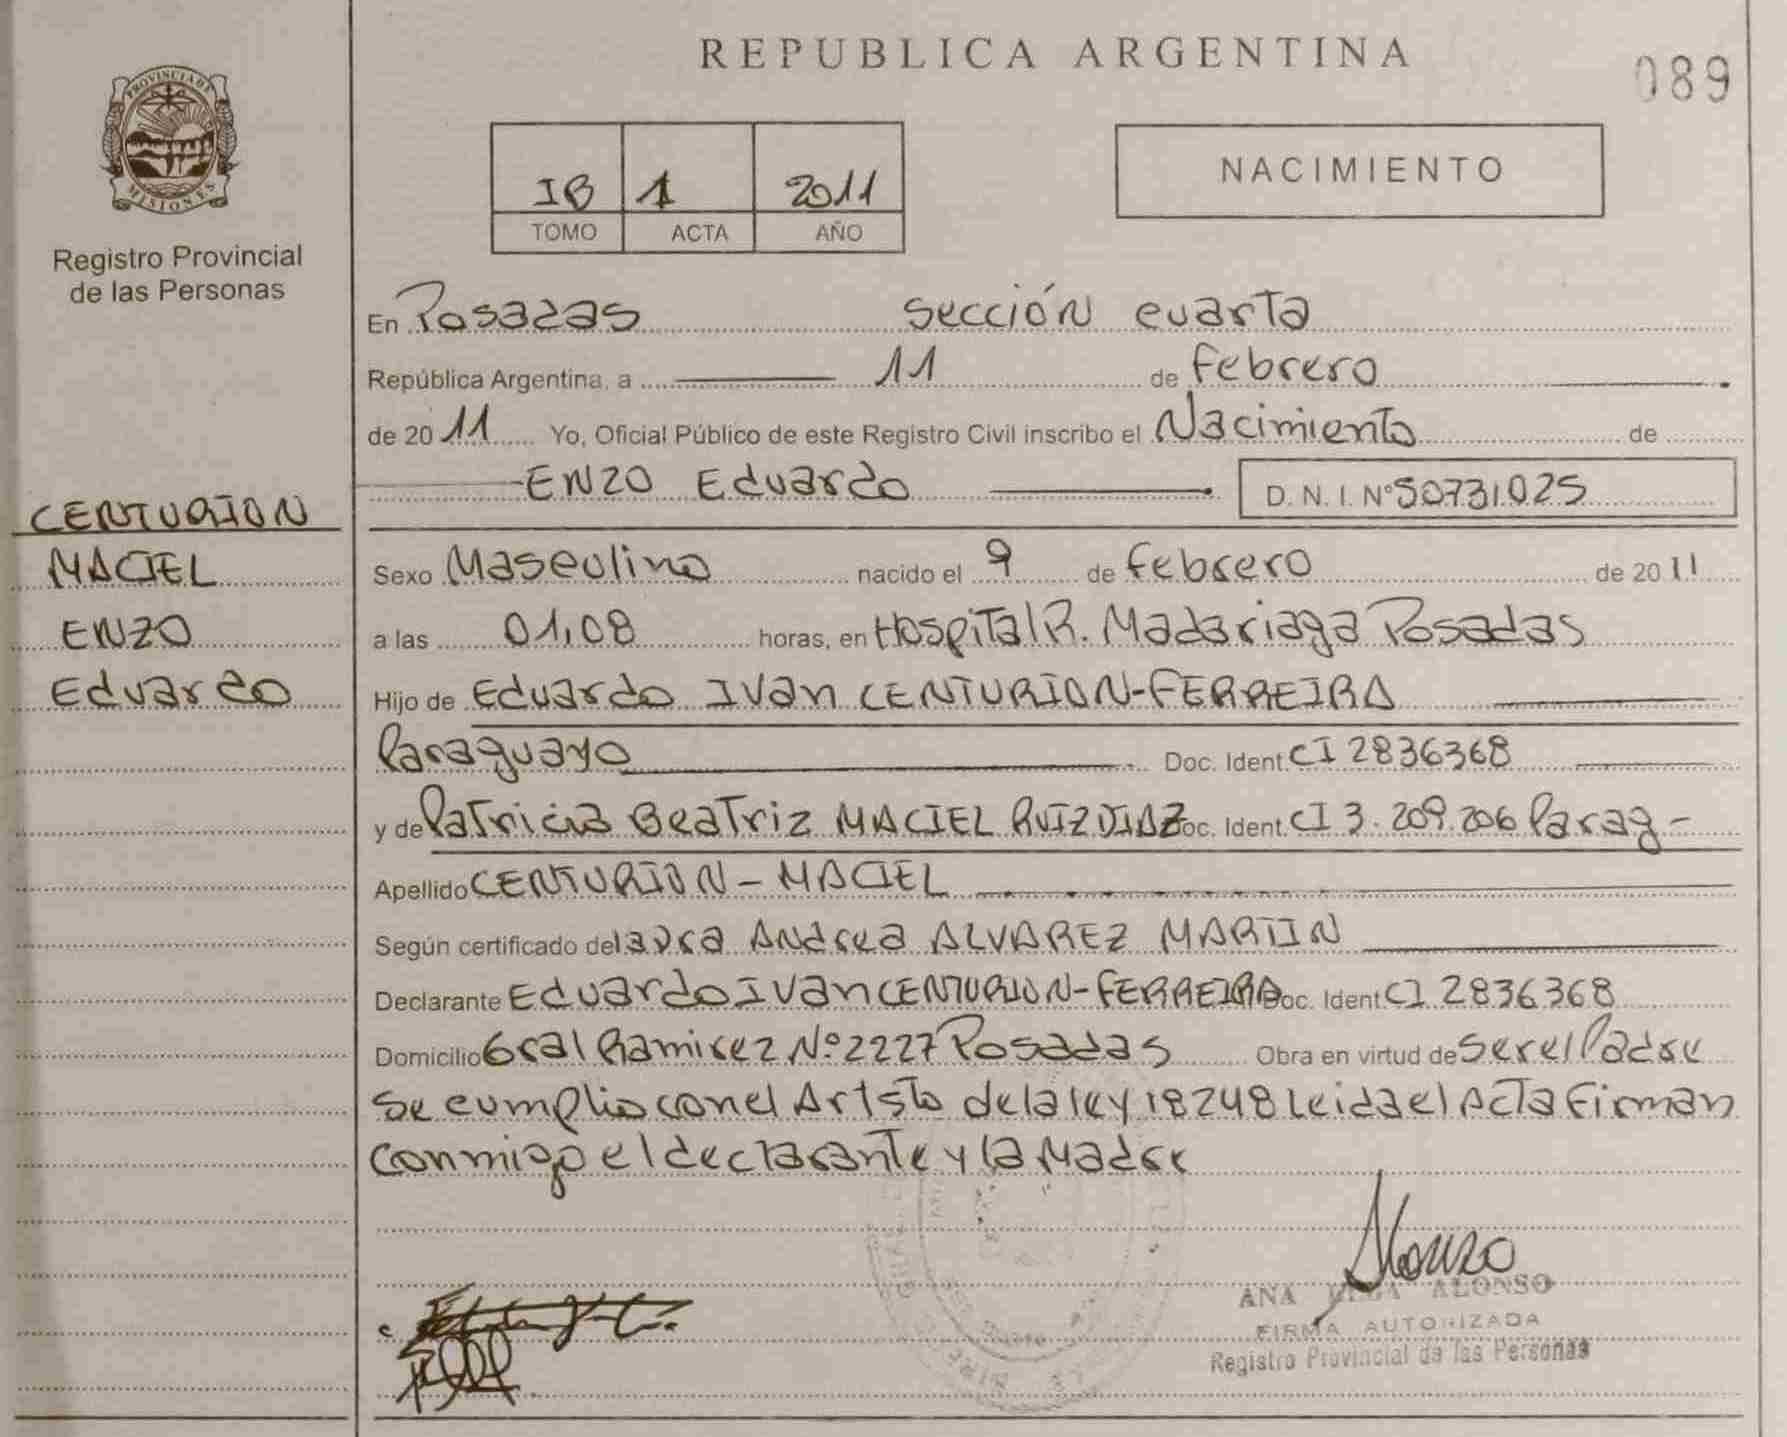 REPUBLICA ARGENTINA
089
PROVINCIA DE
MISIONES
Registro Provincial
de las Personas
IB 1 2011
TOMO ACTA AÑO
NACIMIENTO
En Posadas Sección cuarta
República Argentina, a 11 de Febrero
de 2011 Yo, Oficial Público de este Registro Civil inscribo el Nacimiento de
ENZO Eduardo D. N. I. Nº 50731.025
CENTURION
MACIEL
ENZO
Eduardo
Sexo Masculino nacido el 9 de Febrero de 2011
a las 01,08 horas, en Hospital R. Madariaga Posadas
Hijo de Eduardo Ivan CENTURION-FERREIRA
Paraguayo Doc. Ident. CI 2836368
y de Patricia Beatriz MACIEL RUIZ DIAZ Doc. Ident. CI 3.209.206 Parag-
Apellido CENTURION - MACIEL
Según certificado de la Dra Andrea ALVAREZ MARTIN
Declarante Eduardo Ivan CENTURION-FERREIRA Doc. Ident. CI 2836368
Domicilio Gral Ramirez Nº 2227 Posadas Obra en virtud de Ser el Padre
Se cumplio con el Art 5to de la ley 18248 Leida el Acta Firman
conmigo el declarante y la Madre
Alonso
ANA ALONSO
FIRMA AUTORIZADA
Registro Provincial de las Personas